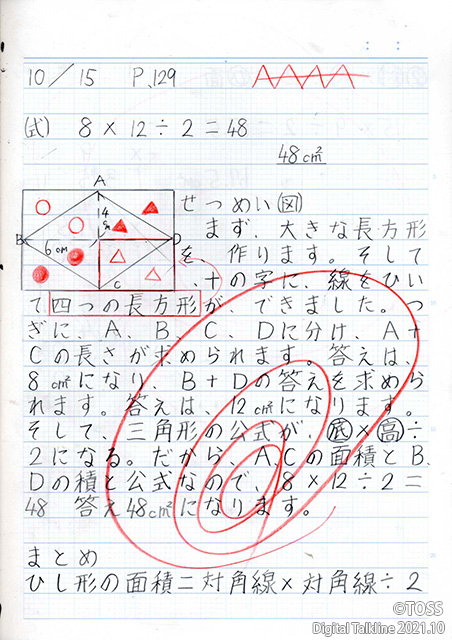 10/15 P.129
AAAA
(式) 8×12÷2=48
48c㎡
A
4cm
B
6cm
D
C
せつめい(図)
まず、大きな長方形
を、作ります。そして
、十の字に、線をひい
て四つの長方形が、できました。つ
ぎに、A、B、C、Dに分け、A+
Cの長さが求められます。答えは、
8c㎡になり、B+Dの答えを求めら
れます。答えは、12c㎡になります。
そして、三角形の公式が、底×高÷
2になる。だから、A、Cの面積とB、
Dの積と公式なので、8×12÷2=
48 答え48c㎡になります。
まとめ
ひし形の面積=対角線×対角線÷2
©TOSS
Digital Talkline 2021.10